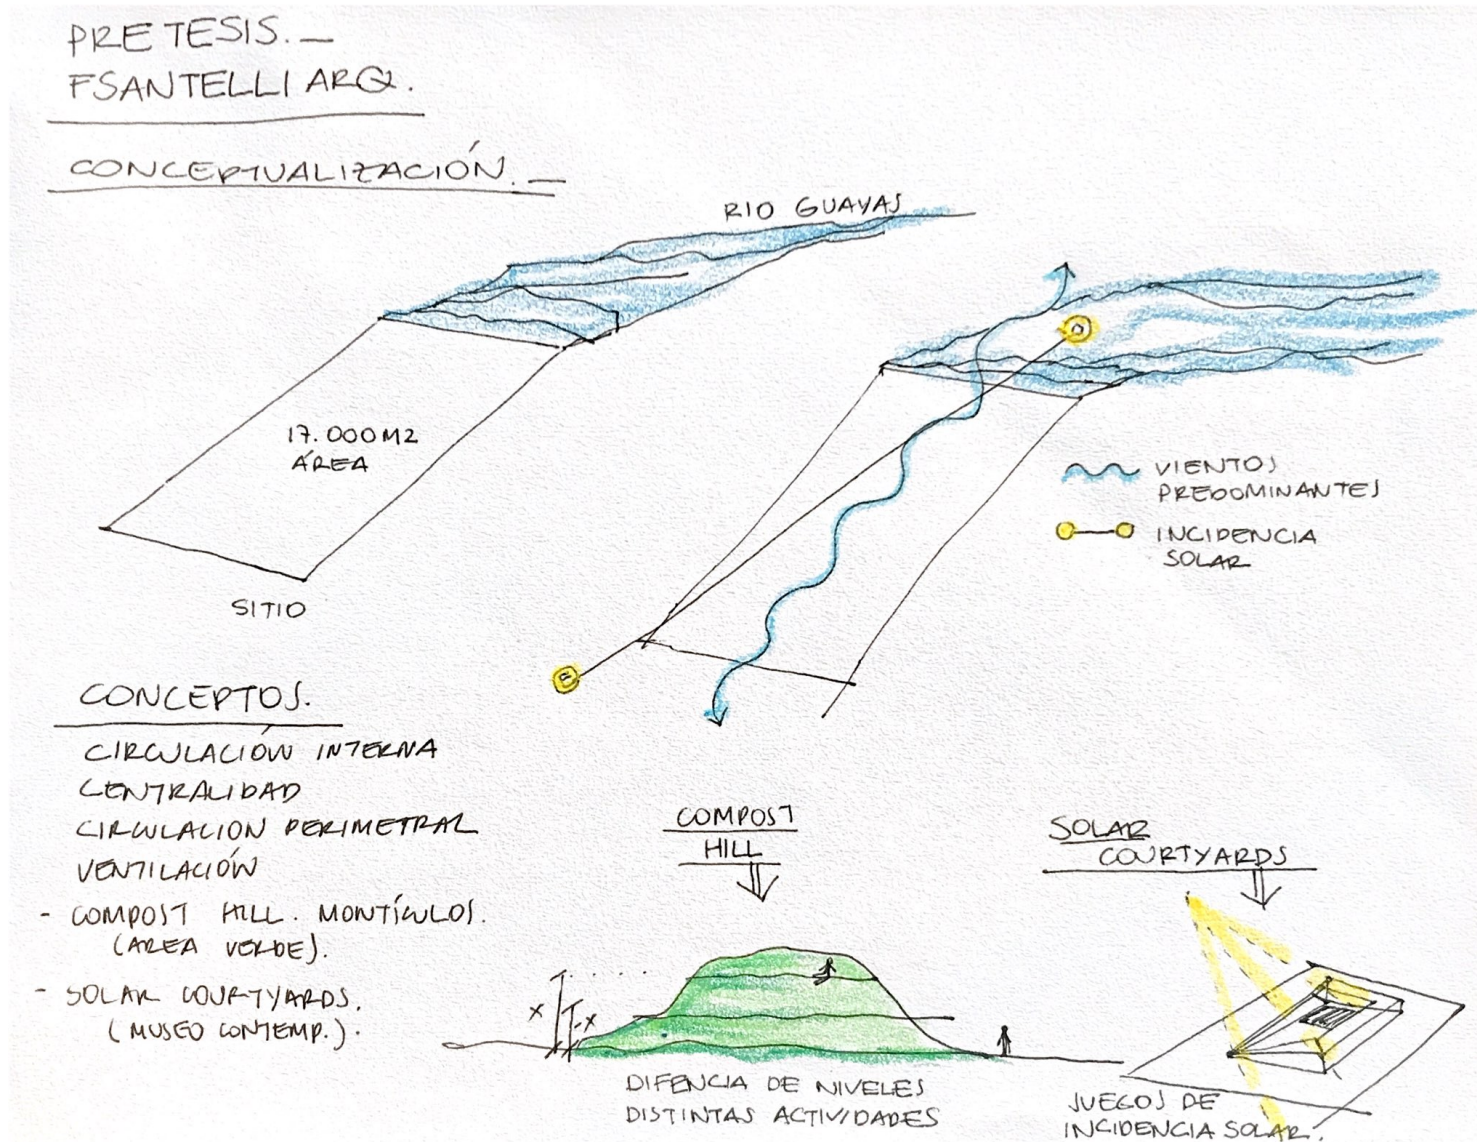 PRE TESIS. _
FSANTELLI ARQ.
CONCEPTUALIZACIÓN. _
RIO GUAYAS
17.000 M2
ÁREA
SITIO
VIENTOS
PREDOMINANTES
INCIDENCIA
SOLAR
CONCEPTOS.
CIRCULACIÓN INTERNA
CENTRALIDAD
CIRCULACION PERIMETRAL
VENTILACIÓN
- COMPOST HILL. MONTÍCULOS.
(AREA VERDE).
- SOLAR COURTYARDS.
(MUSEO CONTEMP.).
COMPOST
HILL
X
-X
DIFENCIA DE NIVELES
DISTINTAS ACTIVIDADES
SOLAR
COURTYARDS
JUEGOS DE
INCIDENCIA SOLAR.